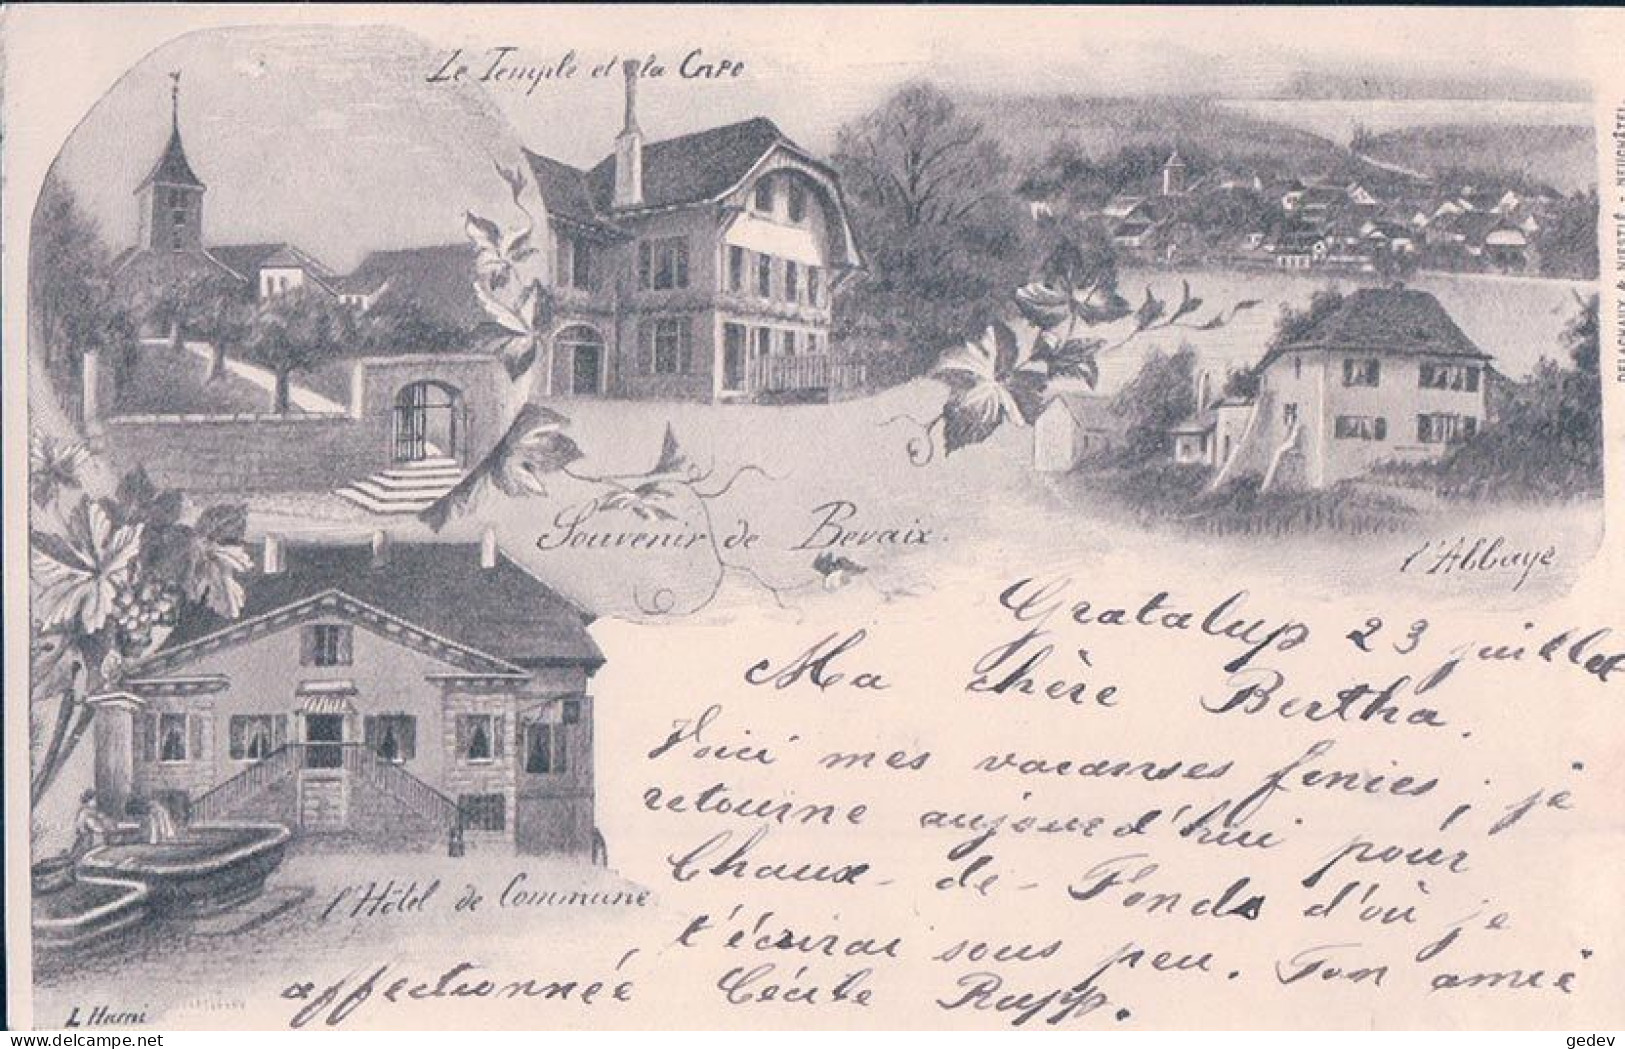 Le Temple et la Cure
DELACHAUX & NIESTLÉ - NEUCHÂTEL
Souvenir de Bevaix.
l'Abbaye
l'Hôtel de Commune
Gratalup 23 juillet
Ma chère Bertha.
Voici mes vacanses finies, je
retourne aujourd'hui pour
Chaux-de-Fonds d'où je
t'écrirai sous peu. Ton amie
affectionnée Cécile Rupp.
gedev